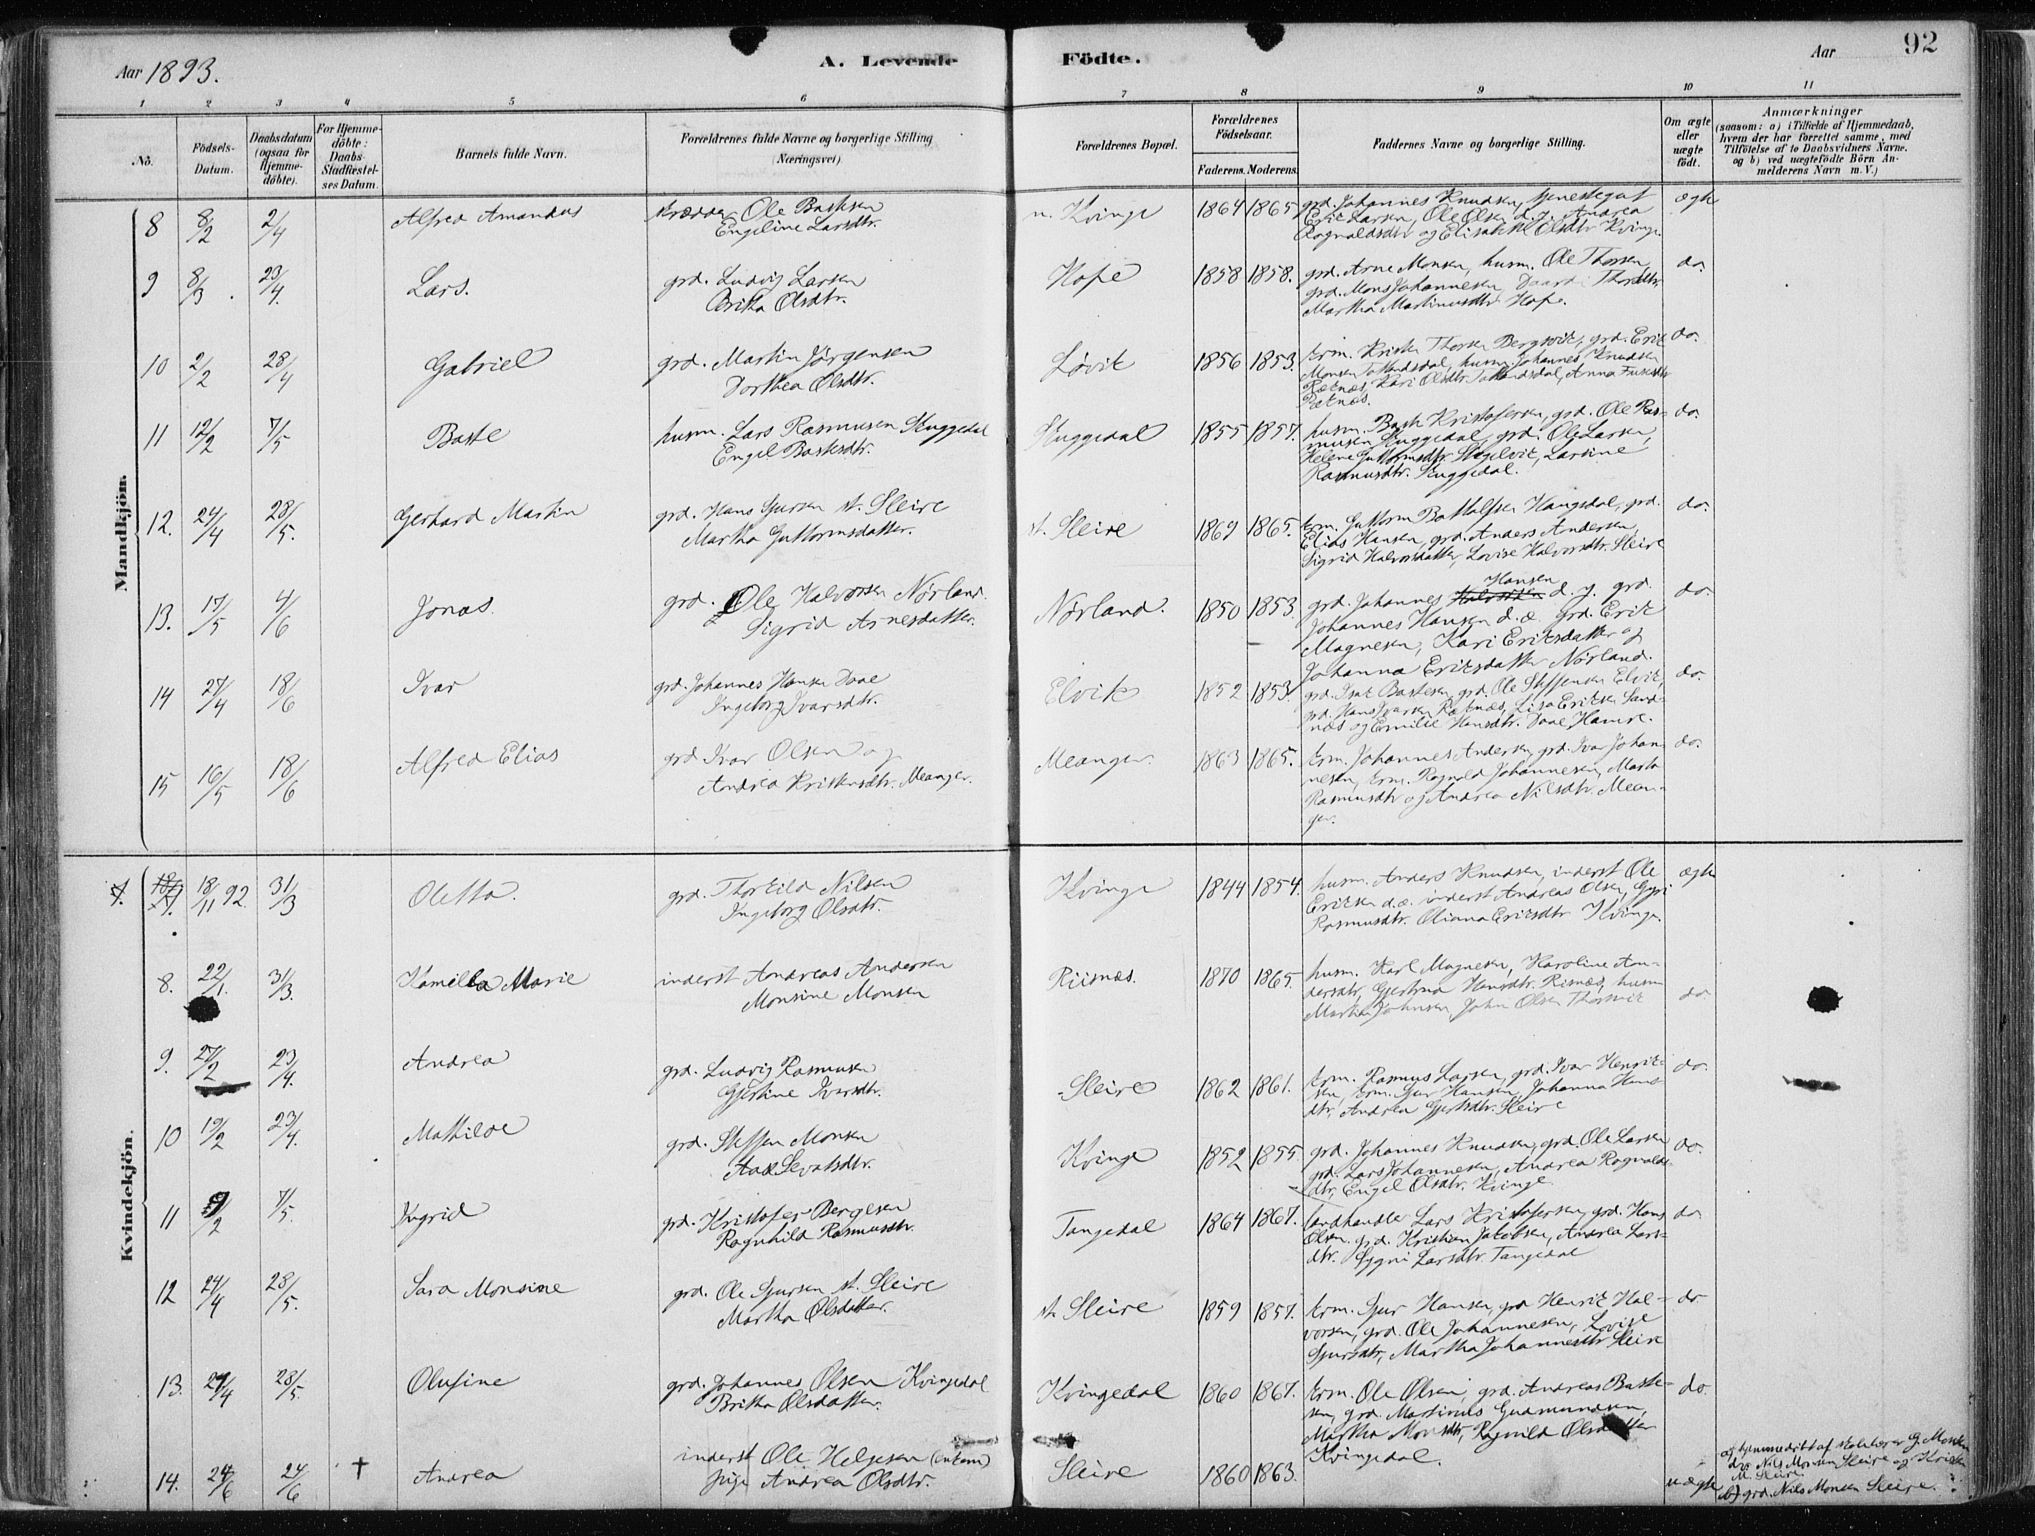 Aar 1893.
A. Levende
Födte.
Aar
92
1
2
3
4
5
6
7
8
9
10
11
No.
Födsels-
Datum.
Daabsdatum
(ogsaa for
Hjemme-
døbte).
For Hjemme-
döbte:
Daabs-
Stadfæstel-
ses Datum.
Barnets fulde Navn.
Forældrenes fulde Navne og borgerlige Stilling
(Næringsvei)
Forældrenes Bopæl.
Forældrenes
Födselsaar.
Faderens.
Moderens.
Faddernes Navne og borgerlige Stilling.
Om ægte
eller
uægte
født.
Anmærkninger
(saasom: a) i Tilfælde af Hjemmedaab,
hvem der har forrettet samme, med
Tilföielse af to Daabsvidners Navne.
og b) ved uægtefödte Börn An-
melderens Navn m. V.)
Mandkjön.
8 8/2 2/4 Alfred Amandus
Ole Bastesen
Engeline Larsdtr.
n. Kvinge 1864 1865
grd. Johannes Knudsen, tjenestegut
Erik Larsen, Ole Olsen d.y. Andrea
Ragnvaldsdtr og Elisabeth Olsdtr Kvinge.
ægte
9 8/3 23/4 Lars.
grd. Ludvig Larsen
Britha Olsdtr.
Hope 1858 1858.
grd. Arne Monsen, husm. Ole Thorsen,
grd. Mons Johannesen, Thorsdtr
Martha Martinusdtr Hope.
do.
10 2/2 28/4 Gabriel
grd. Martin Jørgensen
Dorthea Olsdtr.
Løvik 1856 1853.
Thorsen Bergsvik, grd. Erik
Monsen husm. Johannes Knudsen
Kari Olsdtr. Anna
do.
11 12/2 7/5 Baste
husm. Lars Rasmusen Skuggedal
Engel Bastesdtr.
Skuggedal 1855 1857.
husm. Baste Kristofersen, grd. Ole Ras-
musen Skuggedal, grd. Ole Larsen,
Helene Guttormsdtr Larsine
Rasmusdtr. Skuggedal.
do.
12. 24/4 28/5. Gerhard Martin
grd. Hans Sjursen st. Sleire
Martha Guttormsdatter.
st. Sleire 1869 1865.
Guttorm Haugsdal, grd.
Elias Hansen, grd. Anders Andersen,
Sigrid Halvorsdatter, Lovise Halvorsdtr. Sleire
do.
13. 17/5 4/6 Jonas.
grd. Ole Halvorsen Nørland.
Sigrid Arnesdatter.
Nørland. 1850 1853
Hansen
grd. Johannes d.y. grd.
Johannes Hansen d.æ. grd. Erik
Magnesen, Kari Eriksdatter og
Johanna Eriksdatter Nørland.
do.
14 27/4 18/6 Ivar
grd. Johannes Hansen Daae
Ingeborg Ivarsdtr.
Elvik 1852 1853
Bastesen, grd. Ole Steffensen Elvik,
grd. Hans Ivarsen Lisa Eriksen Sand-
næs og Emilie Hansdtr. Daae Hamre.
do.
15 16/5 18/6 Alfred Elias
grd Ivar Olsen og
Andrea Kristensdtr. Meanger.
Meanger. 1863 1865.
Johannes Andersen, grd. Ivar Johan-
nesen, Ragnvald Johannesen, Marta
Rasmusdtr og Andrea Nilsdtr. Mean-
ger.
do.
Kvindekjön.
7. 18/11 92 31/3 Oletta.
grd. Thorkild Nilsen
Ingeborg Olsdtr.
Kvinge 1844 1854.
husm. Anders Knudsen, inderst Ole
Eriksen d.æ. inderst Andreas Olsen,
Rasmusdtr. Oliana Eriksdtr Kvinge.
ægte
8. 22/1. 31/3. Kamilla Marie
inderst Andreas Andersen
Monsine Monsen
Riisnæs. 1870 1865.
husm. Karl Magnesen, Karoline An-
dersdtr, Gjertrud Hansdtr. Risnæs, husm
Martin Johnsen, John Olsen
do
9. 27/2 23/4. Andrea
grd. Ludvig Rasmusen
Gjertine Ivarsdtr.
Sleire 1862 1861.
Rasmus Larsen, grd. Ivar Henrik-
sen, Sjur Hansen, Johanna Hans-
dtr, Andrea Gjertsdtr. Sleire
do.
10 19/2 23/4. Mathilde
grd. Steffen Monsen
Kvinge 1852 1855.
grd. Johannes Knudsen, grd. Ole Larsen
grd. Lars Johannesen, Andrea Ragnvalds-
dtr, Engel Olsdtr. Kvinge
do.
11 9/2 7/5. Ingrid
grd. Kristofer Bergesen
Ragnhild Rasmusdtr.
Tangedal 1864 1867.
landhandler Lars Kristofersen, grd. Hans
Olsen, grd. Kristian Jakobsen, Andrea Lars-
dtr. Sygni Larsdtr Tangedal
do
12 24/4 28/5. Sara Monsine
grd. Ole Sjursen st. Sleire
Martha Olsdatter.
st. Sleire 1859 1857.
Sjur Hansen, grd Henrik Hal-
vorsen, grd. Ole Johannesen, Lovise
Sjursdtr, Martha Johannesdtr Sleire
do
13. 27/4 28/5. Olufine
grd. Johannes Olsen Kvingedal
Britha Olsdatter.
Kvingedal 1860 1867.
Ole Olsen, grd. Andreas Baste-
sen, grd. Martinus Gudmundsen,
Martha Monsdtr, Ragnild Olsdatter
Kvingedal.
do.
14. 24/6 24/6 † Andrea
inderst Ole Helgesen (enkem)
pige Andrea Olsdtr.
Sleire 1860 1863.
uægte
a) hjemmedøbt af skolelærer G. Monsen
Nils Monsen Sleire og Kristen
M. Sleire.
b) grd. Nils Monsen Sleire.